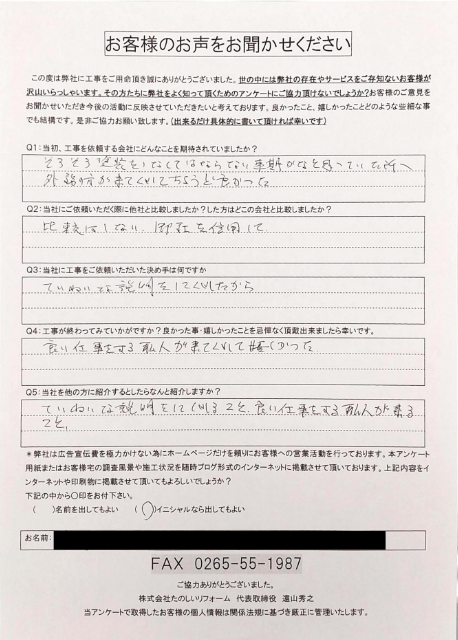 お客様のお声をお聞かせください
この度は弊社に工事をご用命頂き誠にありがとうございました。世の中には弊社の存在やサービスをご存知ないお客様が
沢山いらっしゃいます。その方たちに弊社をよく知って頂くためのアンケートにご協力頂けないでしょうか？お客様のご意見を
お聞かせいただき今後の活動に反映させていただきたいと考えております。良かったこと、嬉しかったことどのような些細な事
でも結構です。是非ご協力お願い致します。（出来るだけ具体的に書いて頂ければ幸いです）
Q1：当初、工事を依頼する会社にどんなことを期待されていましたか？
そろそろ塗装をしなくてはならない事期かなと思っていた所へ
外務の方が来てくれてちょうど良かった
Q2：当社にご依頼いただく際に他社と比較しましたか？した方はどこの会社と比較しましたか？
比較はしない、御社を信用して
Q3：当社に工事をご依頼いただいた決め手は何ですか
ていねいな説明をしてくれたから
Q4：工事が終わってみていかがですか？良かった事・嬉しかったことを忌憚なく頂戴出来ましたら幸いです。
良い仕事をする職人が来てくれて嬉しかった
Q5：当社を他の方に紹介するとしたらなんと紹介しますか？
ていねいな説明をしてくれること、良い仕事をする職人が来る
こと、
＊弊社は広告宣伝費を極力かけない為にホームページだけを頼りにお客様への営業活動を行っております。本アンケート
用紙またはお客様宅の調査風景や施工状況を随時ブログ形式のインターネットに掲載させて頂いております。上記内容をイ
ンターネットや印刷物に掲載させて頂いてもよろしいでしょうか？
下記の中から〇印をお付下さい。
（　）名前を出してもよい　（〇）イニシャルなら出してもよい
お名前：
FAX 0265-55-1987
ご協力ありがとうございました。
株式会社たのしいリフォーム　代表取締役　遠山秀之
当アンケートで取得したお客様の個人情報は関係法規に基づき厳正に管理いたします。